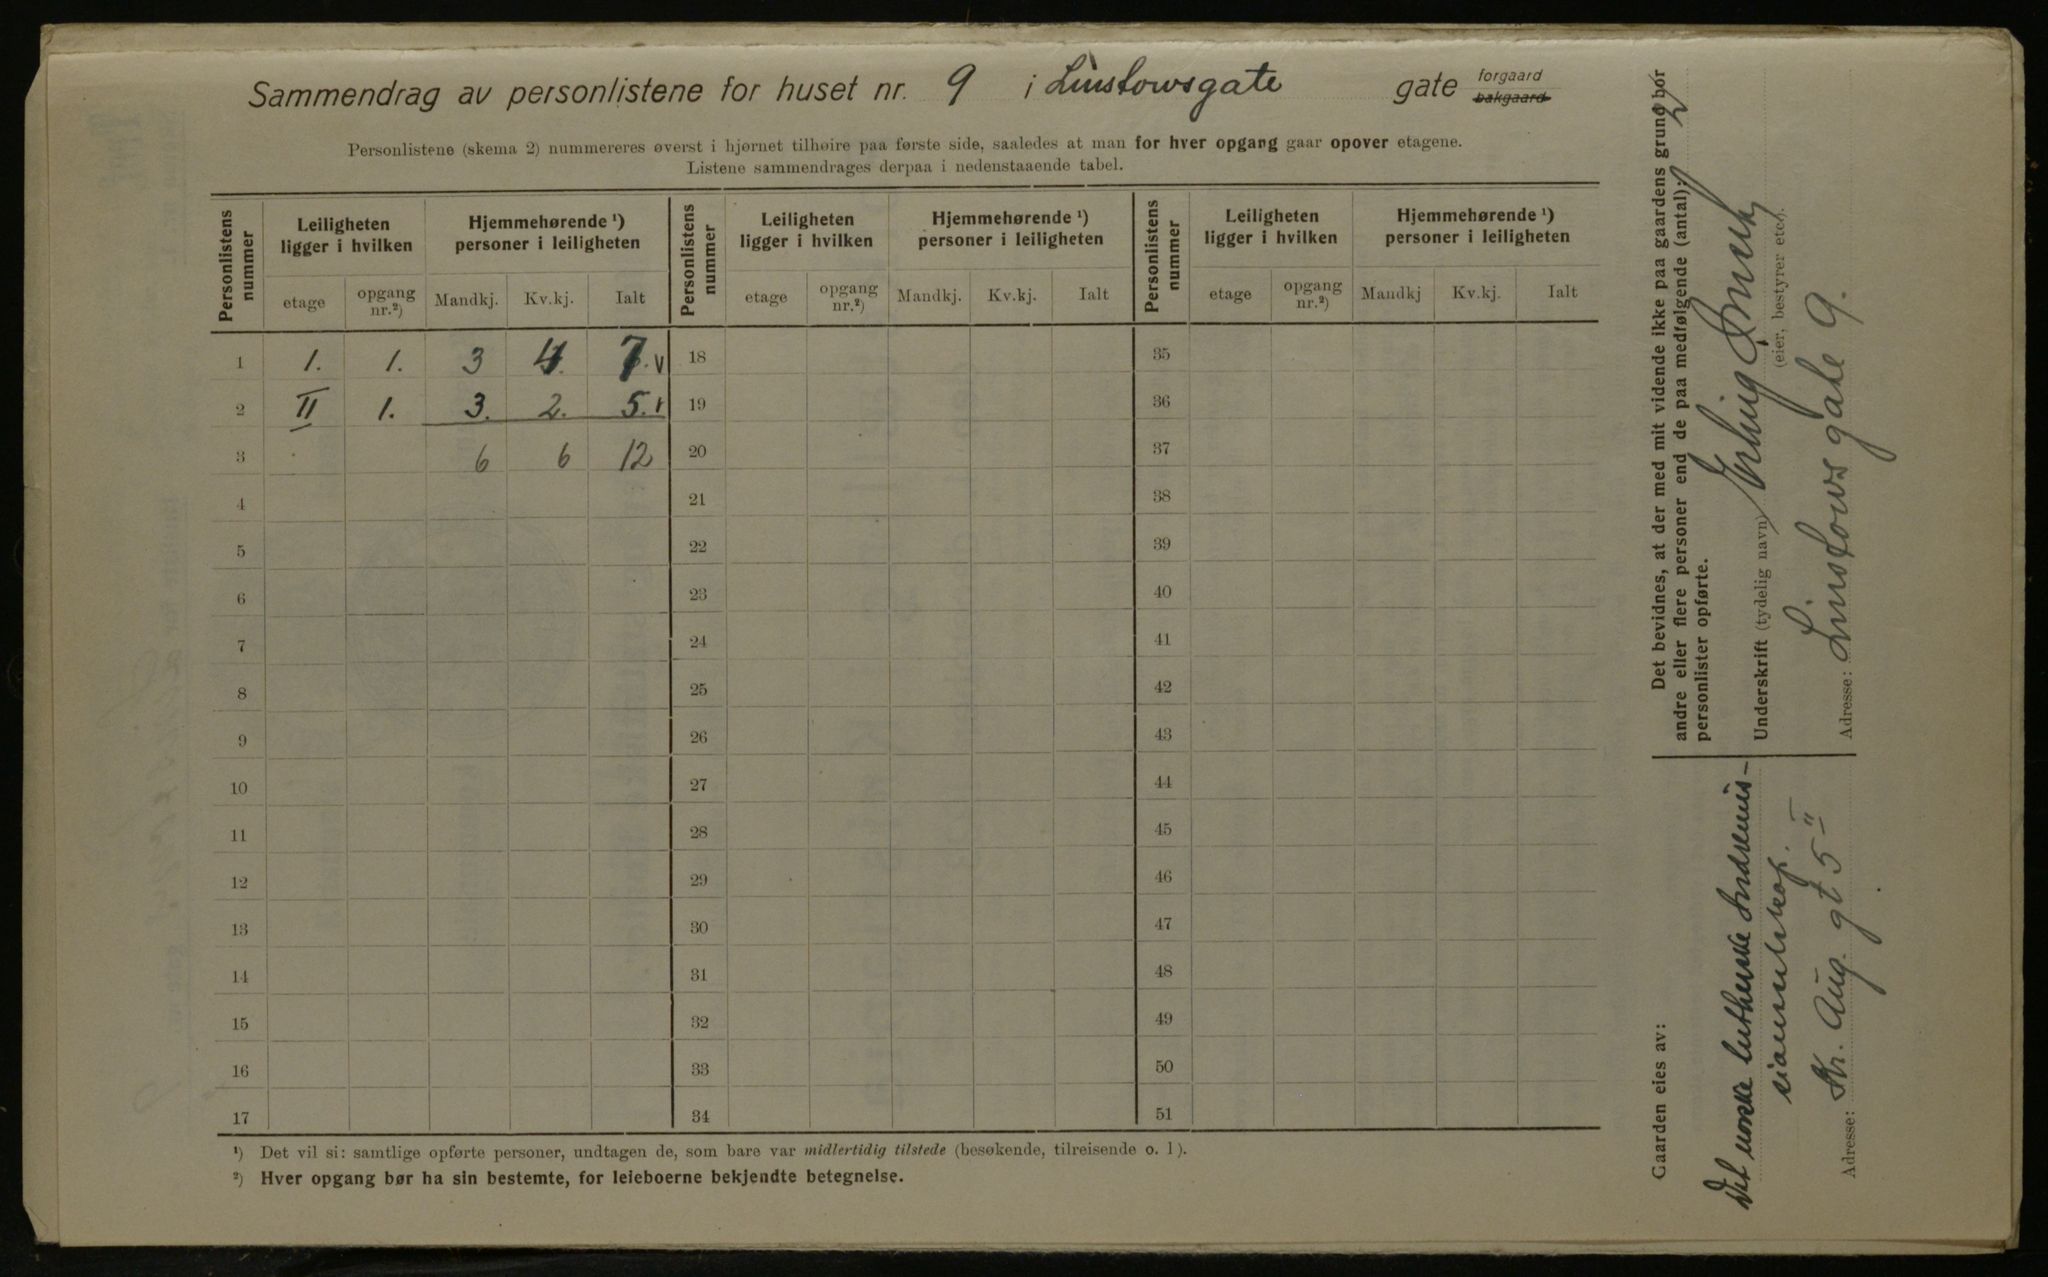 Sammendrag av personlistene for huset nr. 9 i Linstowsgate gate forgaard bakgaard
Personlistene (skema 2) nummereres øverst i hjørnet tilhøire paa første side, saaledes at man for hver opgang gaar opover etagene.
Listene sammendrages derpaa i nedenstaaende tabel.
Personlistens nummer | Leiligheten ligger i hvilken | Hjemmehørende ¹) personer i leiligheten | Personlistens nummer | Leiligheten ligger i hvilken | Hjemmehørende ¹) personer i leiligheten | Personlistens nummer | Leiligheten ligger i hvilken | Hjemmehørende ¹) personer i leiligheten
etage | opgang nr.²) | Mandkj. | Kv.kj. | Ialt | etage | opgang nr.²) | Mandkj. | Kv.kj. | Ialt | etage | opgang nr.²) | Mandkj | Kv.kj. | Ialt
1 | 1. | 1. | 3 | 4. | 7. v | 18 | 35
2 | II | 1. | 3. | 2. | 5. v | 19 | 36
3 | 6 | 6 | 12 | 20 | 37
4 21 38
5 22 39
6 23 40
7 24 41
8 25 42
9 26 43
10 27 44
11 28 45
12 29 46
13 30 47
14 31 48
15 32 49
16 33 50
17 34 51
¹) Det vil si: samtlige opførte personer, undtagen de, som bare var midlertidig tilstede (besøkende, tilreisende o. l).
²) Hver opgang bør ha sin bestemte, for leieboerne bekjendte betegnelse.
Det bevidnes, at der med mit vidende ikke paa gaardens grund bor
andre eller flere personer end de paa medfølgende (antal): 2
personlister opførte.
Underskrift (tydelig navn) Erling
(eier, bestyrer etc.).
Adresse: Linstows gate 9.
Gaarden eies av:
Det norske lutherske Indremis-
sionsselskap.
Adresse: Kr. Aug. gt 5 II